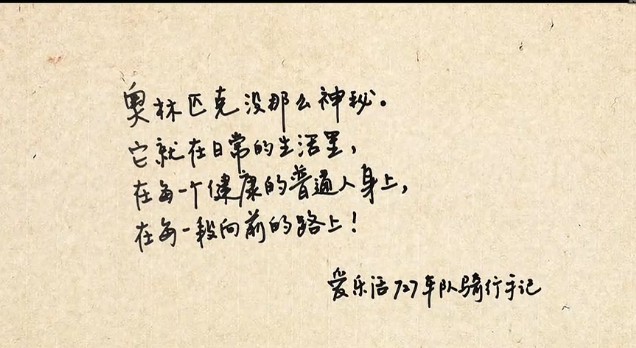 奥林匹克没那么神秘。
它就在日常的生活里，
在每一个健康的普通人身上，
在每一段向前的路上！
爱乐活727车队骑行手记